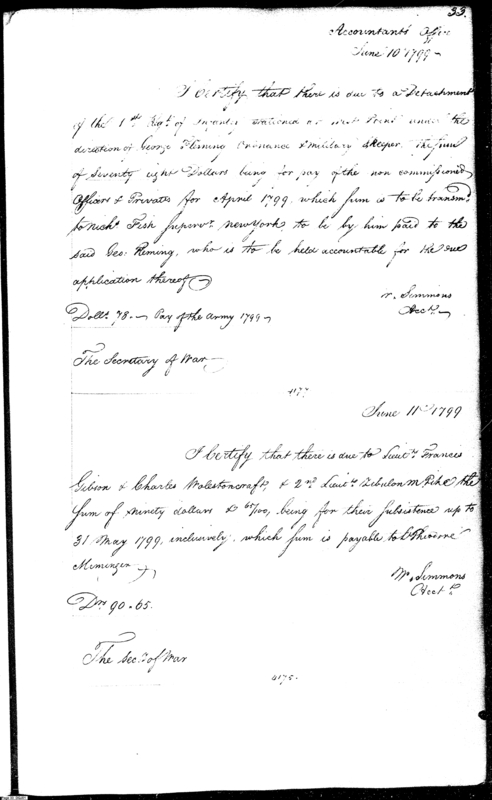 33.
Accountant's Office
June 10th 1799 -
I Certify that there is due to a Detachment
of the 1st Regt. of Infantry stationed at West Point under the
direction of George Fleming Ordnance & Military Skeeper, the sum
of Seventy eight Dollars being for pay of the non commissioned
Officers & Privates for April 1799, which sum is to be transmd.
to Nichs. Fish Supervr. New York to be by him paid to the
said Geo. Fleming, who is to be held accountable for the due
application thereof
W. Simmons
Acct.
Dolls. 78. - Pay of the Army 1799 -
The Secretary of War
4177
June 11th 1799
I Certify that there is due to Lieut. Francis
Gibson & Charles Wolestoncraft, & 2nd Lieut. Zebulon M Pike the
sum of ninety dollars & 65/100, being for their subsistence up to
31 May 1799, inclusively, which sum is payable to
W. Simmons
Acct.
Drs. 90.65.
The Secy. of War
4178.